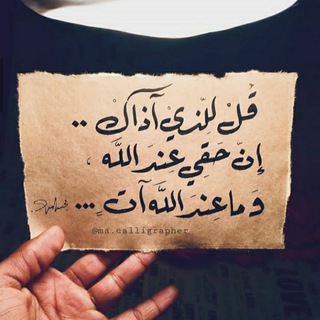 قُلْ للّذيْ آذاكْ ..
إنّ حَقي عِندَ اللَّه ،
وَ ما عِندَ اللَّه آتٍ ...
@ma.calligrapher